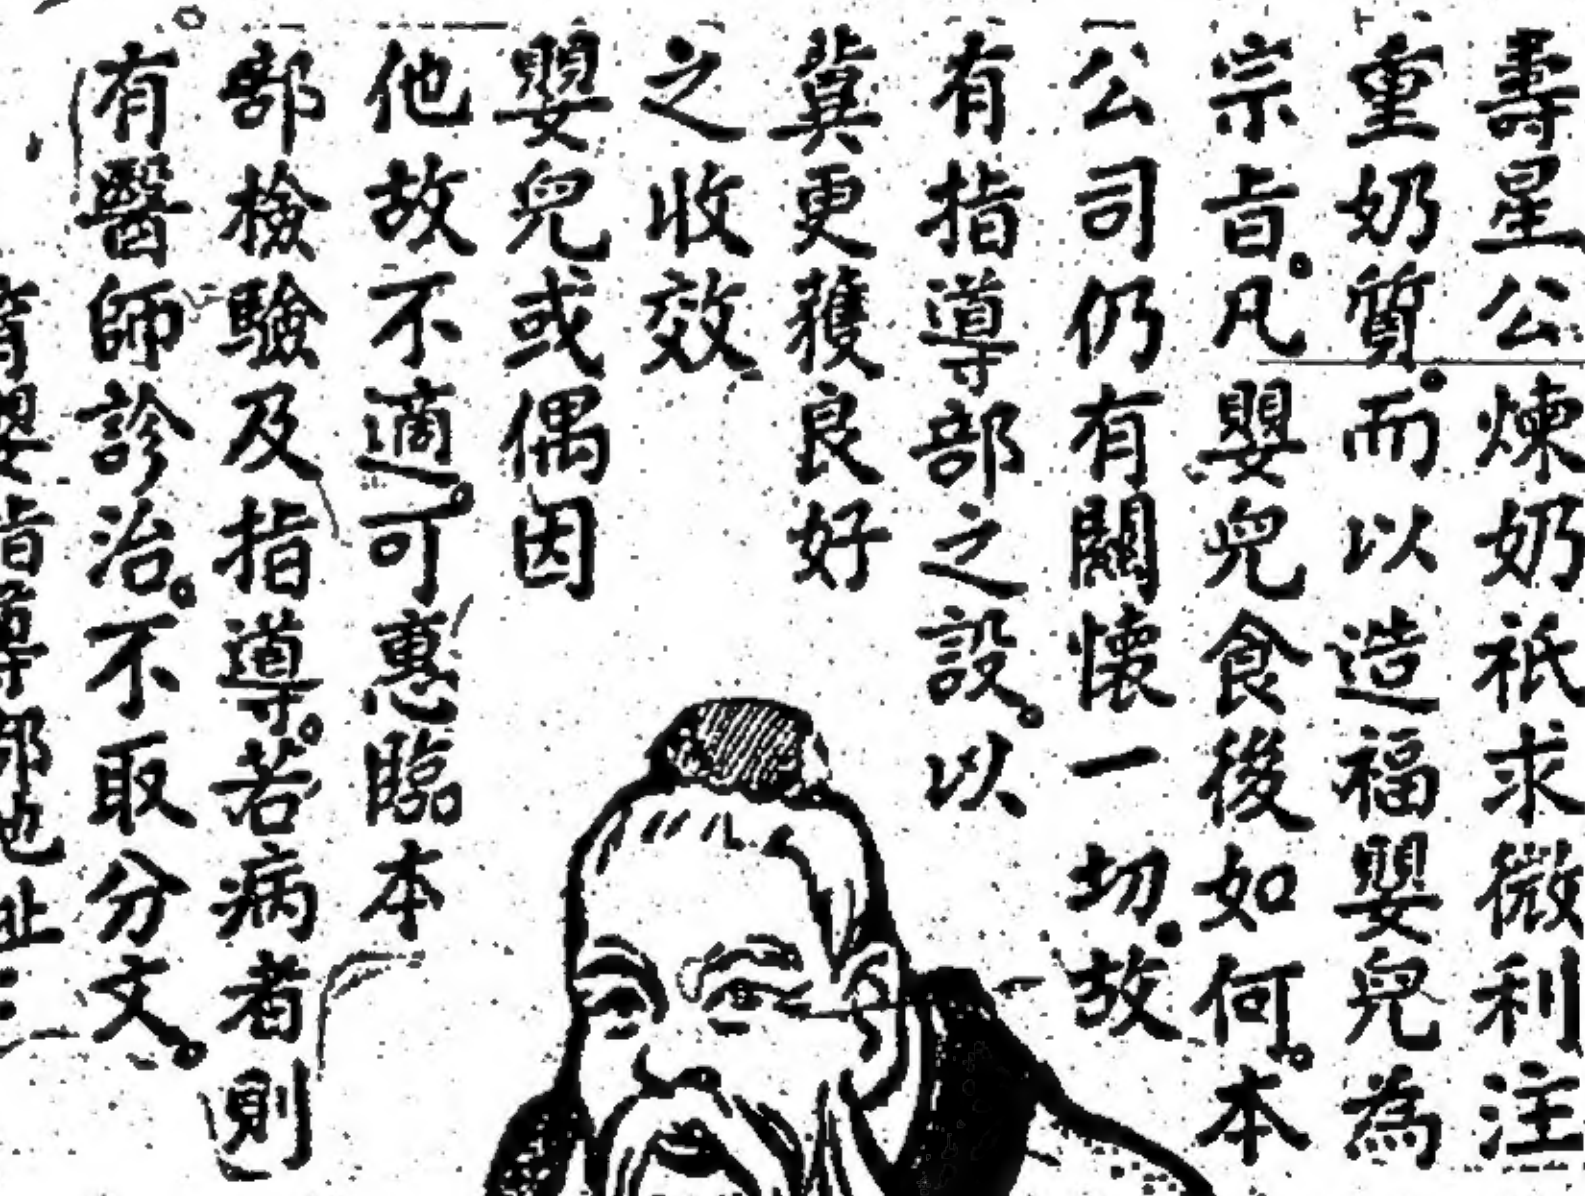 壽星公煉奶祇求微利注
重奶質.而以造福嬰兒為
宗旨。凡嬰兒食後如何。本
公司仍有關懷一切.故
有指導部之設。以
冀更獲良好
之收效
嬰兒或偶因
他故不適。可惠臨本
部檢驗及指導。若病者則
有醫師診治。不取分文。
育嬰指導部地址